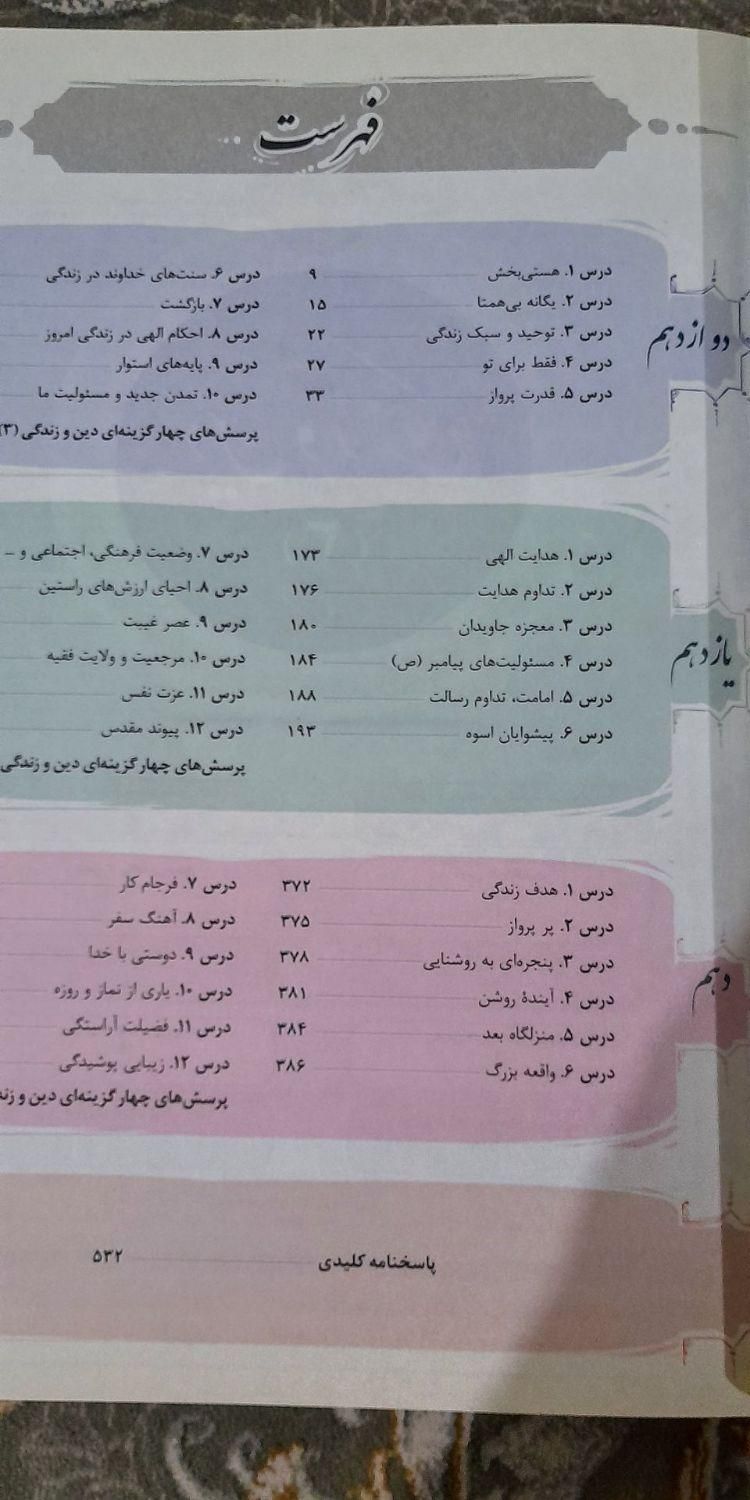 فهرست
دوازدهم
درس ۱. هستی‌بخش ۹
درس ۲. یگانه بی‌همتا ۱۵
درس ۳. توحید و سبک زندگی ۲۲
درس ۴. فقط برای تو ۲۷
درس ۵. قدرت پرواز ۳۳
درس ۶. سنت‌های خداوند در زندگی
درس ۷. بازگشت
درس ۸. احکام الهی در زندگی امروز
درس ۹. پایه‌های استوار
درس ۱۰. تمدن جدید و مسئولیت ما
پرسش‌های چهارگزینه‌ای دین و زندگی (۳)
یازدهم
درس ۱. هدایت الهی ۱۷۳
درس ۲. تداوم هدایت ۱۷۶
درس ۳. معجزه جاویدان ۱۸۰
درس ۴. مسئولیت‌های پیامبر (ص) ۱۸۴
درس ۵. امامت، تداوم رسالت ۱۸۸
درس ۶. پیشوایان اسوه ۱۹۳
درس ۷. وضعیت فرهنگی، اجتماعی و ...
درس ۸. احیای ارزش‌های راستین
درس ۹. عصر غیبت
درس ۱۰. مرجعیت و ولایت فقیه
درس ۱۱. عزت نفس
درس ۱۲. پیوند مقدس
پرسش‌های چهارگزینه‌ای دین و زندگی
دهم
درس ۱. هدف زندگی ۳۷۲
درس ۲. پر پرواز ۳۷۵
درس ۳. پنجره‌ای به روشنایی ۳۷۸
درس ۴. آیندهٔ روشن ۳۸۱
درس ۵. منزلگاه بعد ۳۸۴
درس ۶. واقعه بزرگ ۳۸۶
درس ۷. فرجام کار
درس ۸. آهنگ سفر
درس ۹. دوستی با خدا
درس ۱۰. یاری از نماز و روزه
درس ۱۱. فضیلت آراستگی
درس ۱۲. زیبایی پوشیدگی
پرسش‌های چهارگزینه‌ای دین و
پاسخنامه کلیدی ۵۳۲